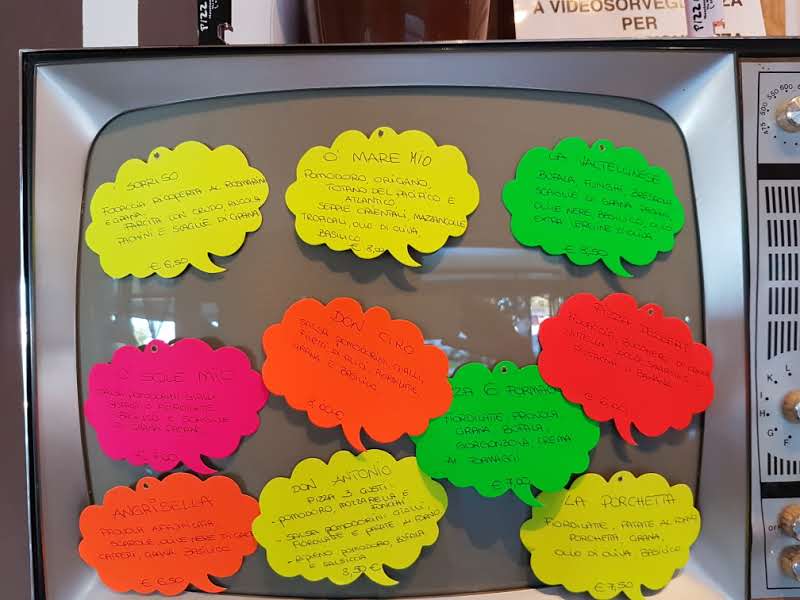 A VIDEOSORVEGLIANZA
PER
SOPRISO
FOCACCIA RICOPERTA AL ROSMARINO
E GRANA
FARCITA CON CRUDO RUCOLA
PACHINI E SCAGLIE DI GRANA
€ 6,50
O' MARE MIO
POMODORO, ORIGANO,
TOTANO DEL PACIFICO E
ATLANTICO
SEPPIE ORIENTALI, MAZZANCOLLE
TROPICALI, OLIO DI OLIVA
BASILICO
€ 8,00
LA VALTELLINESE
BUFALA, FUNGHI, BRESAOLA
SCAGLIE DI GRANA
OLIVE NERE BASILICO, OLIO
EXTRA VERGINE D'OLIVA
€ 8,50
O SOLE MIO
SALSA POMODORINI GIALLI
FIORDILATTE
BASILICO E SCAGLIE
DI GRANA
DON CIRO
SALSA POMODORINI GIALLI,
FIORDILATTE
GRANA E BASILICO
PIZZA
€ 6,00
ZA 6 FORMAGGI
FIORDILATTE PROVOLA
GRANA BUFALA,
GORGONZOLA, CREMA
AI FORMAGGI
€ 7,00
ANGRISELLA
PROVOLA AFFUMICATA
SCAROLE, OLIVE NERE DI GAETA
CAPPERI, GRANA, BASILICO
€ 6,50
DON ANTONIO
PIZZA 3 GUSTI:
- POMODORO, MOZZARELLA E
FUNGHI
- SALSA POMODORINI GIALLI,
FIORDILATTE E PATATE AL FORNO
- RIPIENO POMODORO, BUFALA
E SALSICCIA
8,50 €
LA PORCHETTA
FIORDILATTE, PATATE AL FORNO
PORCHETTA, GRANA,
OLIO DI OLIVA, BASILICO
€ 7,50
K
L
I
H
G
F
OFF